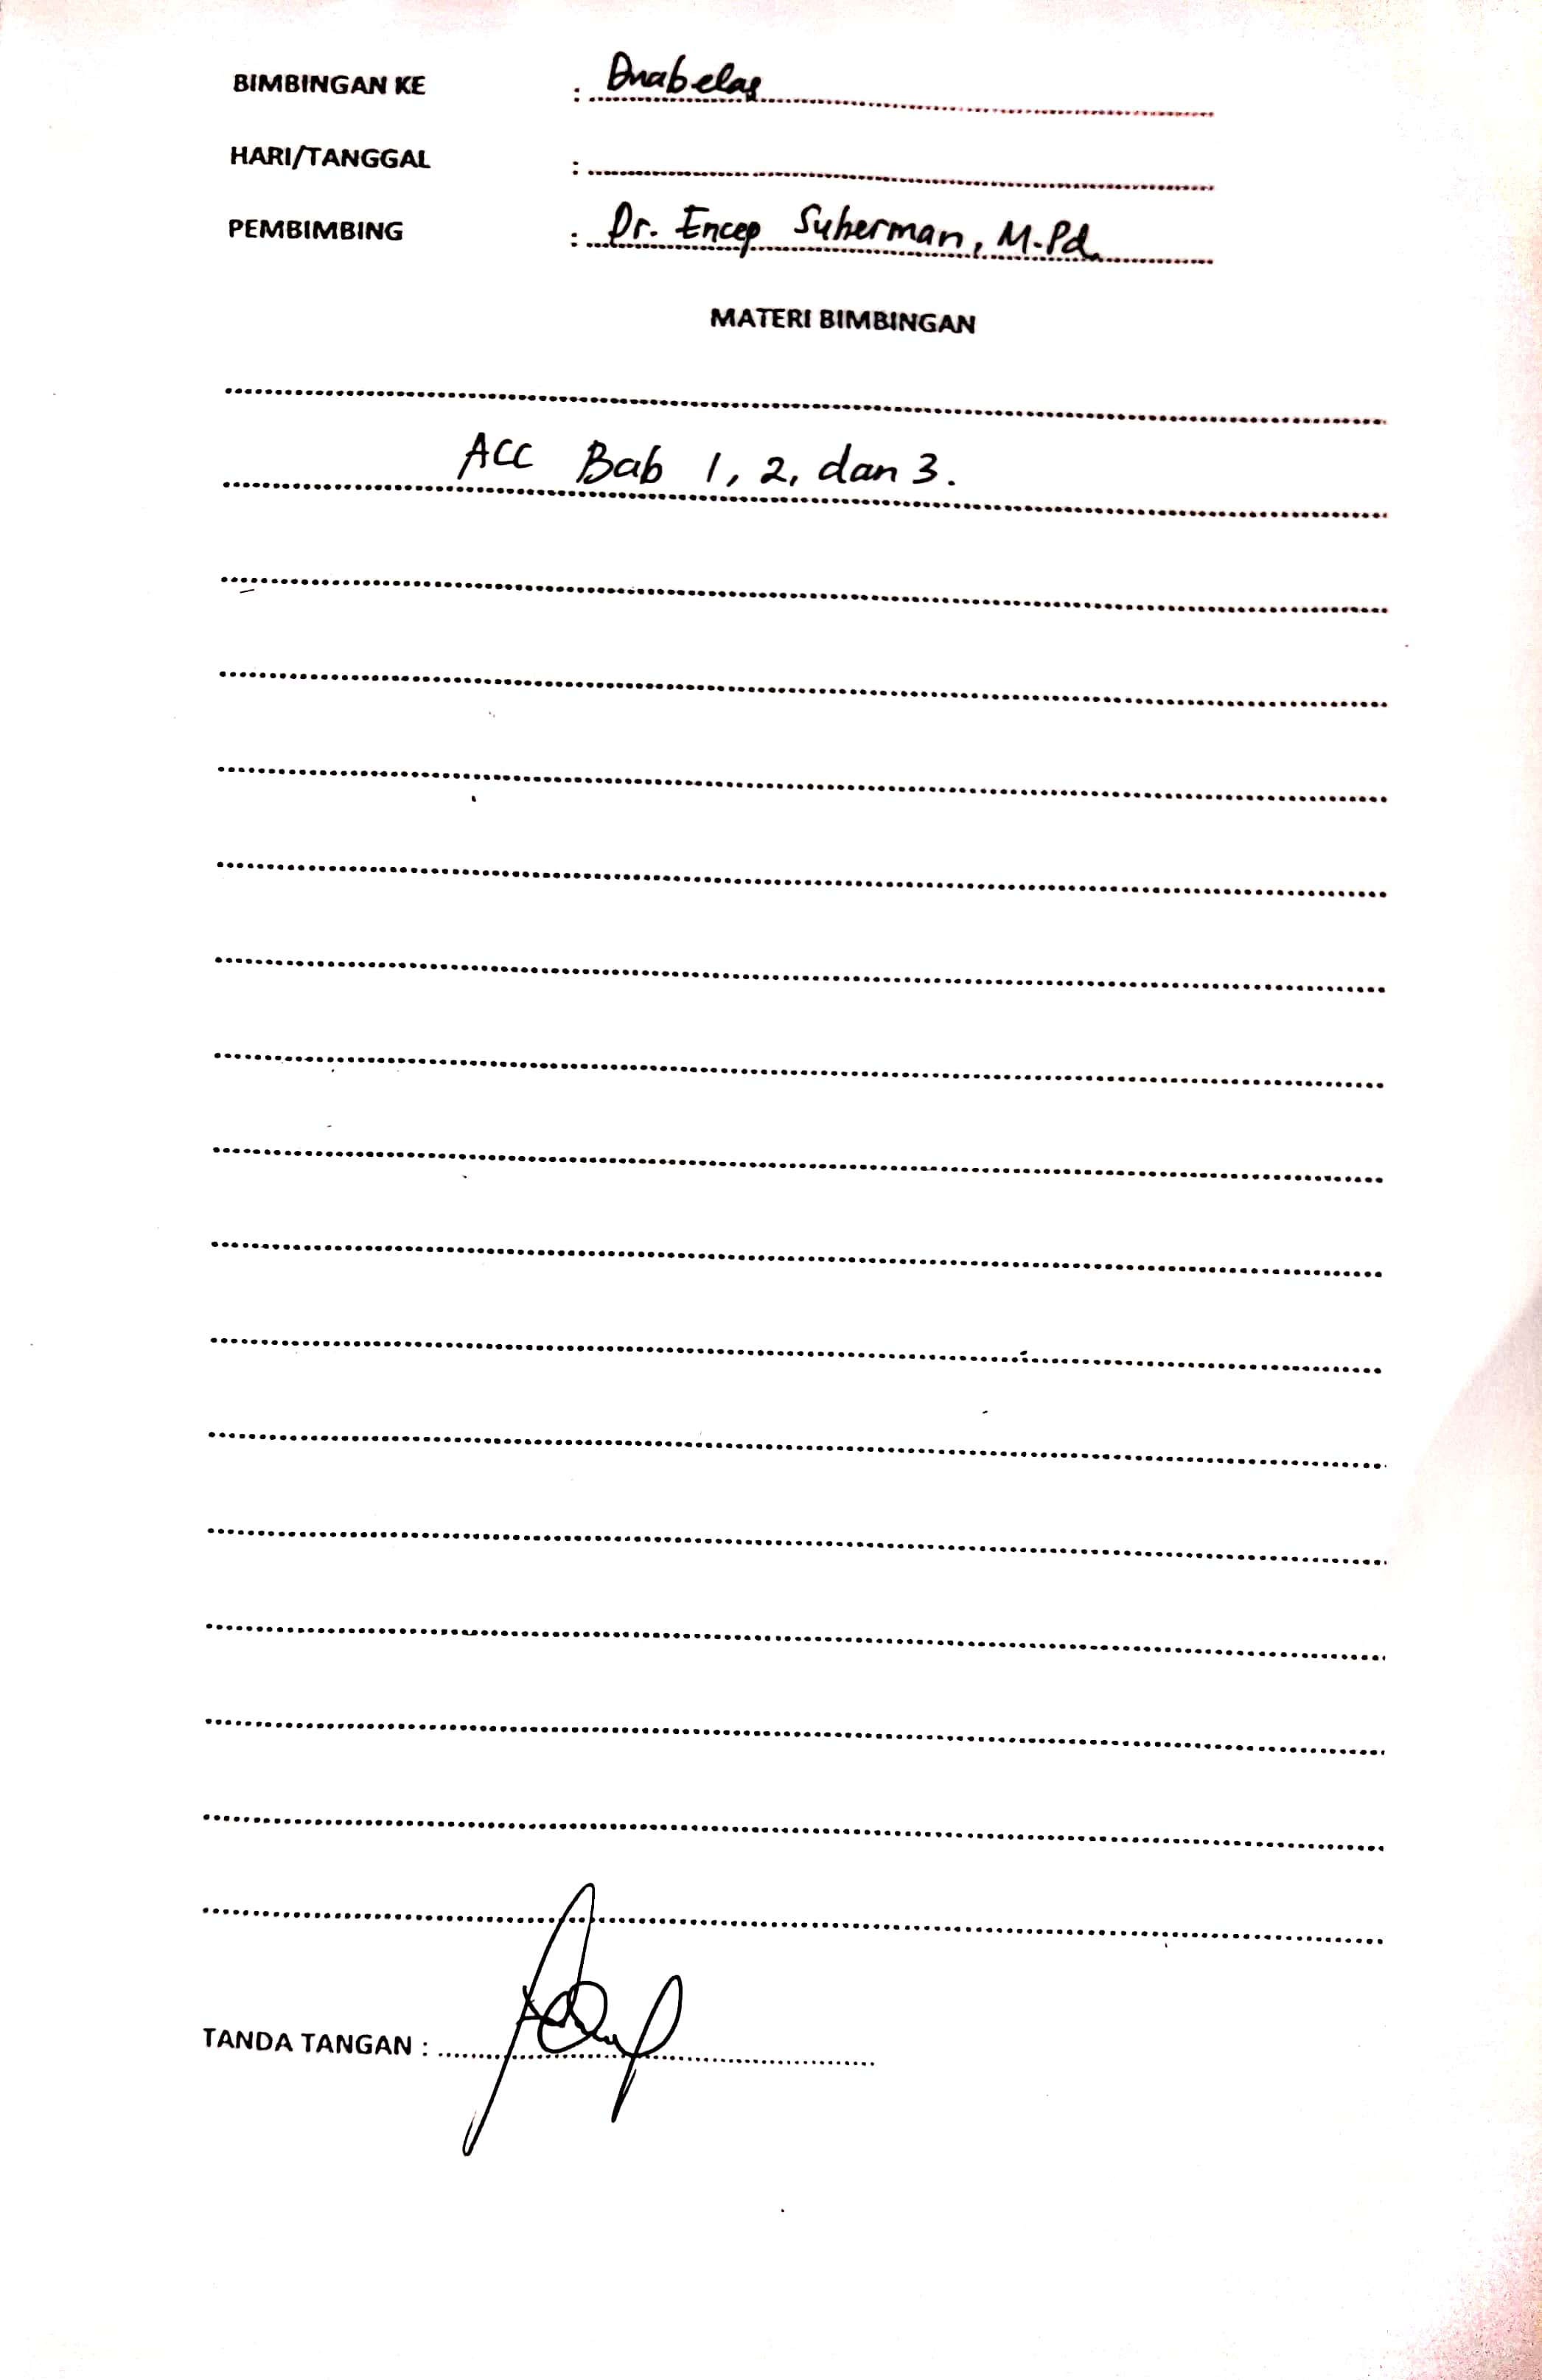 BIMBINGAN KE : Duabelas
HARI/TANGGAL :
PEMBIMBING : Dr. Encep Suherman, M.Pd.
MATERI BIMBINGAN
ACC Bab 1, 2, dan 3.
TANDA TANGAN :